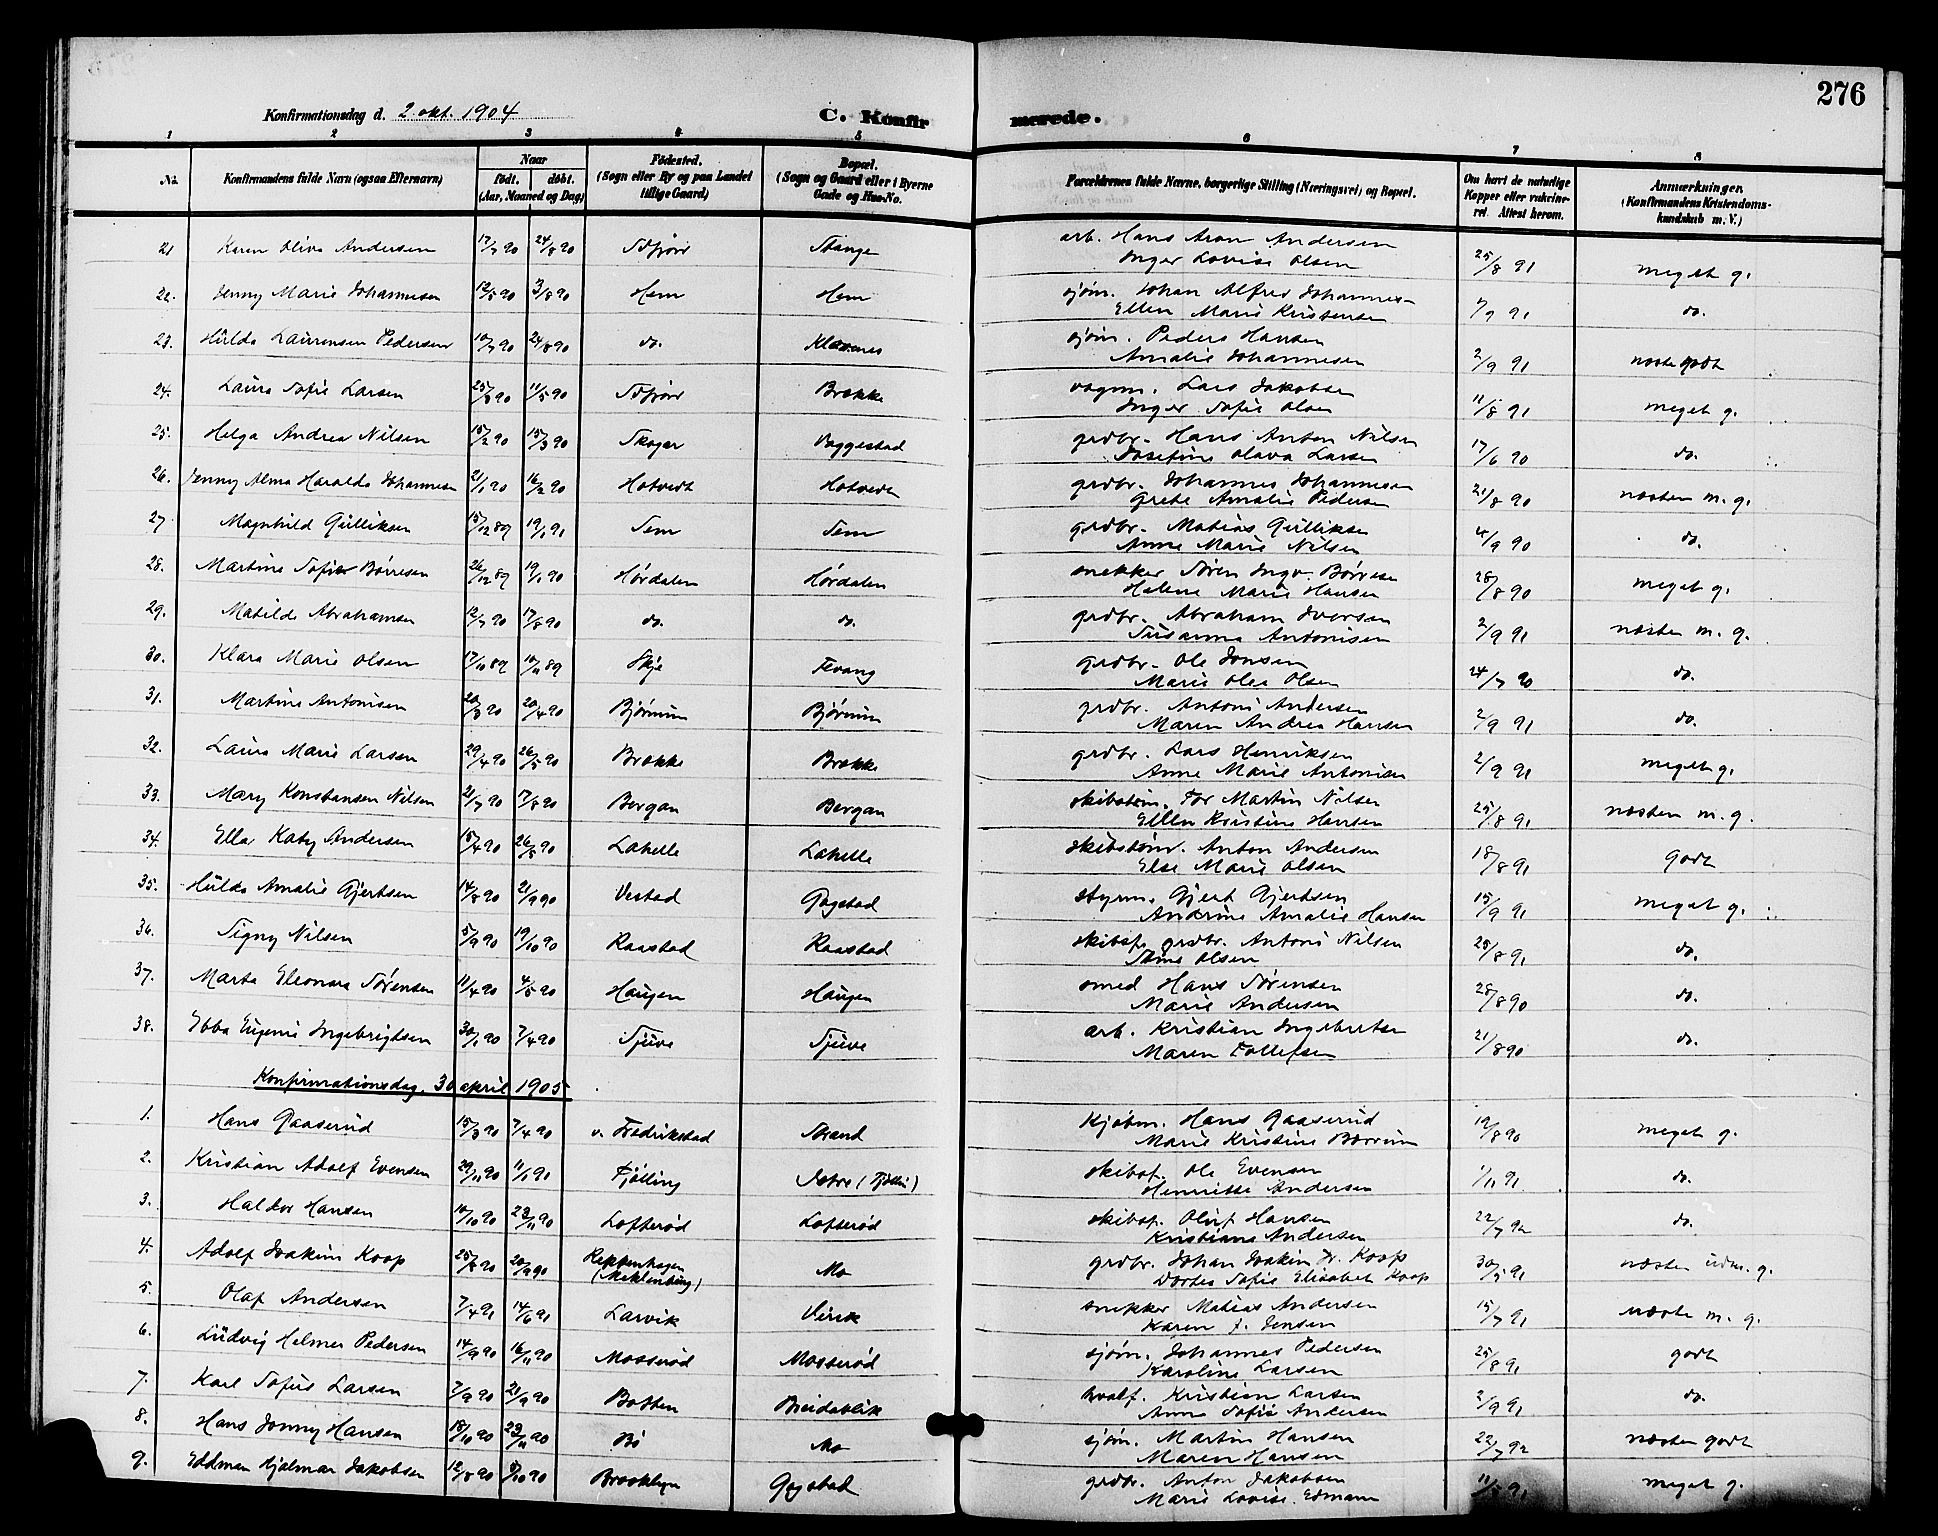 276
Konfirmationsdag d. 2 okt. 1904 C. Konfirmerede.
1 2 3 4 5 6 7 8
No. Konfirmandens fulde Navn (ogsaa Efternavn) Naar født. døbt. (Aar, Maaned og Dag) Fødested. (Sogn eller By og paa Landet tillige Gaard) Bopæl. (Sogn og Gaard eller i Byerne Gade og Hus-No. Forældrenes fulde Navne, borgerlige Stilling (Næringsvei) og Bopæl. Om havt de naturlige Kopper eller vakcineret. Attest herom. Anmærkninger. (Konfirmandens Kristendomskundskab m. V.)
21 Karen Olive Andersen 17/7 90 24/8 90 Stange arb. Hans Aron Andersen 25/8 91 meget g.
Inger Lovise Olsen
22. Jenny Marie Johannesen 12/5 90 3/8 90 Hem Hem sjøm. Johan Alfred Johannes- 7/9 91 do.
Ellen Marie Kristensen
23. Hulda Laurensen Pedersen 10/7 90 24/8 90 do. Klavenes sjøm. Peders Hansen 2/9 91 næste godt
Amalie Johannesen
24. Laura Sofie Larsen 25/3 90 11/5 90 Brække vognm. Lars Jakobse 11/8 91 meget g.
Inger Sofie Olsen
25. Helga Andrea Nilsen 15/2 90 15/3 90 Skoger Baggestad grdbr. Hans Anton Nilsen 17/6 90 do.
Josefine Olava Larsen
26. Jenny Alma Haralda Johannesen 21/1 90 16/2 90 Hotvedt Hotvedt grdbr. Johannes Johannesen 21/8 90 næsten m. g.
Grete Amalie Pedersen
27 Magnhild Gulliksen 15/12 89 19/1 91 Sem Sem grdbr. Matias Gullikse 4/9 90 do.
Anne Marie Nilsen
28. Martine Sofie Børresen 26/12 89 19/1 90 Hørdalen Hørdalen snekker Søren Ingv. Børrese 28/8 90 meget g.
Helene Marie Hansen
29. Matilde Abrahamsen 12/7 90 17/8 90 do. do. grdbr. Abraham Iversen 2/9 91 næsten m. g.
Susanna Antonisen
30. Klara Marie Olsen 17/10 89 10/11 89 Skje Fevang grdbr. Ole Jonsen 24/7 90 do.
Marie Olea Olsen
31. Martine Antonisen 20/3 90 20/4 90 Bjørnum Bjørnum grdbr. Antoni Andersen 2/9 91 do.
Maren Andrea Hansen
32. Laura Marie Larsen 29/4 90 26/5 90 Brække Brække grdbr. Lars Henriksen 2/9 91 meget g.
Anne Marie Antonisen
33. Mary Konstansen Nilsen 21/7 90 17/8 90 Bergan Bergan skibstøm. Tor Martin Nilsen 25/8 91 næsten m. g.
Ellen Kristine Hansen
34. Ella Katy Andersen 15/4 90 26/5 90 Lahelle Lahelle skibstøm. Anton Andersen 18/8 91 godt
Else Marie Olsen
35. Hulda Amalie Gjertsen 14/8 90 21/9 90 Vestad Gogstad styrm. Gjert Gjertsen 15/9 91 meget g.
Andrine Amalie Hansen
36. Signy Nilsen 5/9 90 19/10 90 Raastad Raastad skibsf. grdbr. Antoni Nilsen 25/8 91 do.
Olsen
37. Marta Eleonora Sørensen 11/4 90 4/5 90 Haugen Haugen smed Hans Sørensen 28/8 90 do.
Marie Andersen
38. Ebba Eugenie Ingebrigtsen 30/1 90 7/4 90 Tjuve Tjuve arb. Kristian Ingebretse 21/8 90 do.
Maren Tollefsen
Konfirmationsdag 30 april 1905
1. Hans Gaaserud 15/3 90 7/4 90 v. Fredrikstad Strand Kjøbm. Hans Gaaserud 19/8 90 meget g.
Marie Kristine Børrum
2. Kristian Adolf Evensen 29/11 90 11/1 91 Fjølling (Tjølli) skibsf. Ole Evensen 1/11 91 do.
Henriette Andersen
3. Haldor Hansen 10/10 90 23/11 90 Lofterød Lofterød skibsf. Oluf Hansen 22/7 92 do.
Kristiane Andersen
4. Adolf Joakim Koop 25/8 90 20/9 90 Reppenhagen (Meklenburg) Mo grdbr. Johan Joakim Fr. Koop 30/5 91 næsten udm. g.
Dortea Sofie Elisabet Koop
5. Olaf Andersen 7/4 91 14/6 91 Larvik Virik snekker Matias Andersen 15/7 91 næste m. g.
Karen J. Jensen
6. Ludvig Helmer Pedersen 14/9 90 16/11 90 Mosserød Mosserød sjøm. Johannes Pedersen 25/8 91 godt
Karoline Larsen
7. Karl Sofus Larsen 7/9 90 21/9 90 Botten Breidablik hvalf. Kristian Larsen 2/9 91 do.
Anna Sofie Andersen
8. Hans Jonny Hansen 18/10 90 23/11 90 Bø Mo sjøm. Martin Hansen 22/7 92 næsten godt
Maren Hansen
9. Eddman Hjalmar Jakobsen 12/8 90 5/10 90 Brooklyn Gogstad grdbr. Anton Jakobsen 11/8 91 meget g.
Marie Lovise Edmann